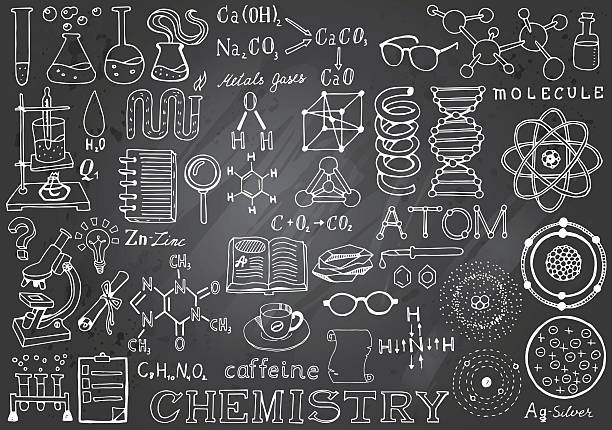 Ca(OH)₂
Na₂CO₃
CaCO₃
CaO
Metals gases
MOLECULE
H₂O
Q₁
O
H H
H
H H
H H
H
C + O₂ → CO₂
ATOM
?
Zn-Zinc
A
CH₃
N
N
O
H₃C
N
N
CH₃
O
H
H N H
H
C₈H₁₀N₄O₂
caffeine
CHEMISTRY
Ag-Silver